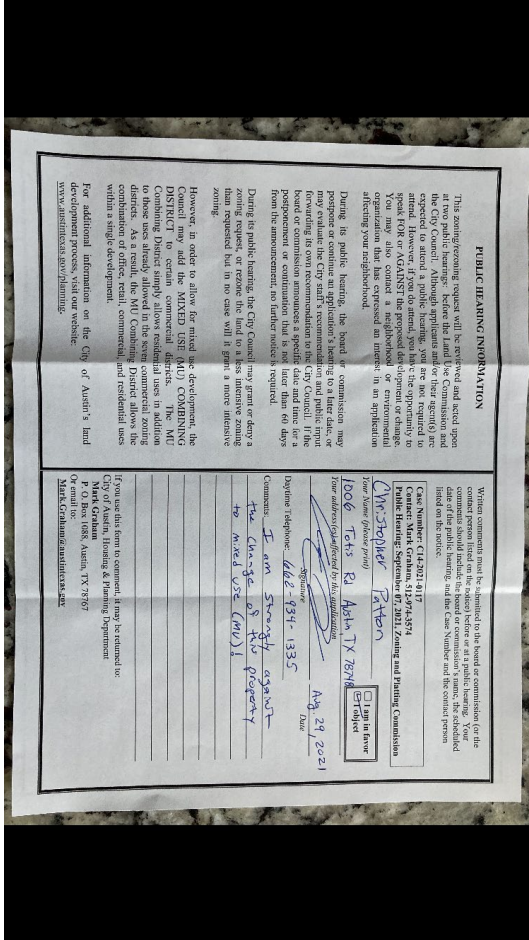 PUBLIC HEARING INFORMATION
This zoning/rezoning request will be reviewed and acted upon
at two public hearings: before the Land Use Commission and
the City Council. Although applicants and/or their agent(s) are
expected to attend a public hearing, you are not required to
attend. However, if you do attend, you have the opportunity to
speak FOR or AGAINST the proposed development or change.
You may also contact a neighborhood or environmental
organization that has expressed an interest in an application
affecting your neighborhood.
During its public hearing, the board or commission may
postpone or continue an application's hearing to a later date, or
may evaluate the City staff's recommendation and public input
forwarding its own recommendation to the City Council. If the
board or commission announces a specific date and time for a
postponement or continuation that is not later than 60 days
from the announcement, no further notice is required.
During its public hearing, the City Council may grant or deny a
zoning request, or rezone the land to a less intensive zoning
than requested but in no case will it grant a more intensive
zoning.
However, in order to allow for mixed use development, the
Council may add the MIXED USE (MU) COMBINING
DISTRICT to certain commercial districts. The MU
Combining District simply allows residential uses in addition
to those uses already allowed in the seven commercial zoning
districts. As a result, the MU Combining District allows the
combination of office, retail, commercial, and residential uses
within a single development.
For additional information on the City of Austin's land
development process, visit our website:
www.austintexas.gov/planning.
Written comments must be submitted to the board or commission (or the
contact person listed on the notice) before or at a public hearing. Your
comments should include the board or commission's name, the scheduled
date of the public hearing, and the Case Number and the contact person
listed on the notice.
Case Number: C14-2021-0117
Contact: Mark Graham, 512-974-3574
Public Hearing: September 07, 2021, Zoning and Platting Commission
Christopher Patton
Your Name (please print)
I am in favor
I object
1006 Totis Rd Austin, TX 78748
Your address(es) affected by this application
Aug. 29, 2021
Signature Date
Daytime Telephone: 662-934-1335
Comments: I am strongly against
the change of this property
to mixed use (MU)!
If you use this form to comment, it may be returned to:
City of Austin, Housing & Planning Department
Mark Graham
P. O. Box 1088, Austin, TX 78767
Or email to:
Mark.Graham@austintexas.gov